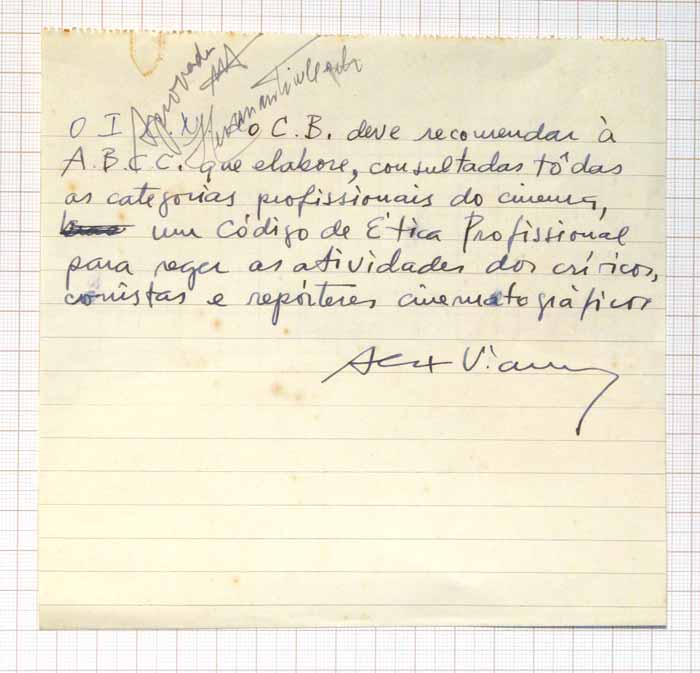 Aprovada
O I C.B. deve recomendar à
A.B.C.C. que elabore, consultadas tôdas
as categorias profissionais do cinema,
um Código de Ética Profissional
para reger as atividades dos críticos,
cronistas e repórteres cinematográficos
Alex Viany